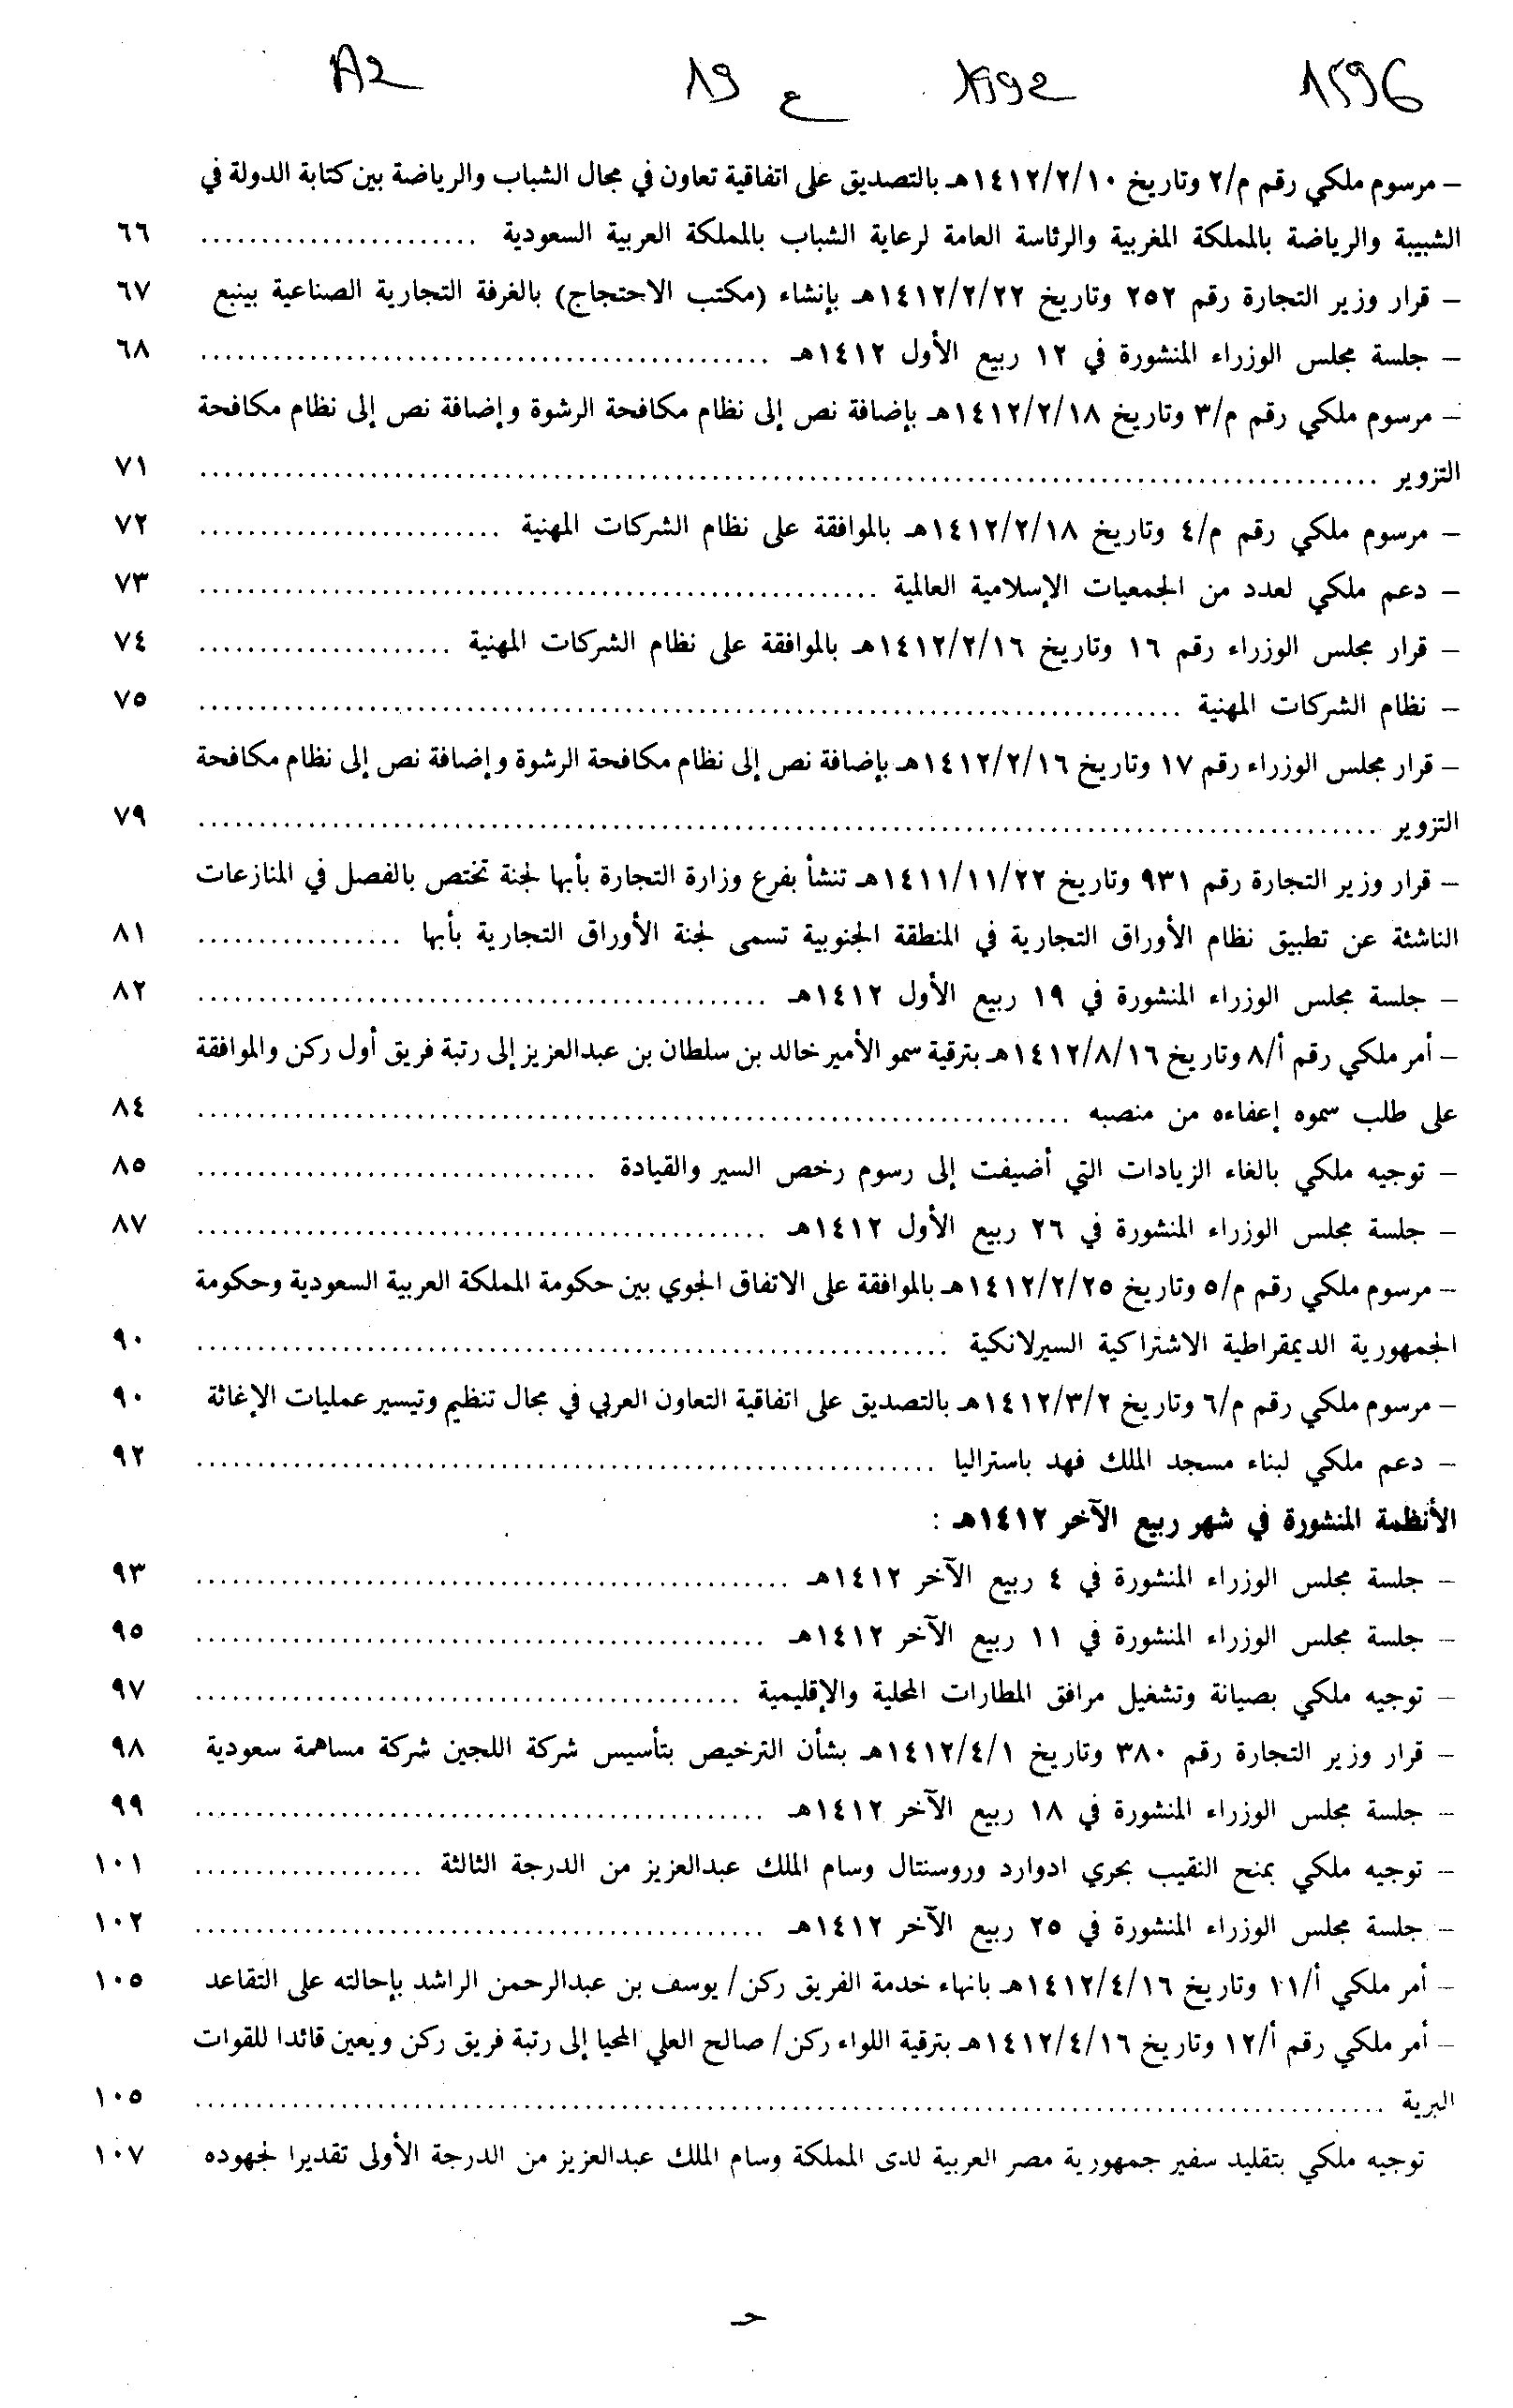 1596 1992 ع 19 A2
– مرسوم ملكي رقم م/٢ وتاريخ ١٤١٢/٢/١٠هـ بالتصديق على اتفاقية تعاون في مجال الشباب والرياضة بين كتابة الدولة في
الشبيبة والرياضة بالمملكة المغربية والرئاسة العامة لرعاية الشباب بالمملكة العربية السعودية ....................... ٦٦
– قرار وزير التجارة رقم ٢٥٢ وتاريخ ١٤١٢/٢/٢٢هـ بإنشاء (مكتب الاحتجاج) بالغرفة التجارية الصناعية بينبع ٦٧
– جلسة مجلس الوزراء المنشورة في ١٢ ربيع الأول ١٤١٢هـ ............................................... ٦٨
– مرسوم ملكي رقم م/٣ وتاريخ ١٤١٢/٢/١٨هـ بإضافة نص إلى نظام مكافحة الرشوة وإضافة نص إلى نظام مكافحة
التزوير .................................................................................................. ٧١
– مرسوم ملكي رقم م/٤ وتاريخ ١٤١٢/٢/١٨هـ بالموافقة على نظام الشركات المهنية ......................... ٧٢
– دعم ملكي لعدد من الجمعيات الإسلامية العالمية ........................................................ ٧٣
– قرار مجلس الوزراء رقم ١٦ وتاريخ ١٤١٢/٢/١٦هـ بالموافقة على نظام الشركات المهنية ..................... ٧٤
– نظام الشركات المهنية .................................................................................. ٧٥
– قرار مجلس الوزراء رقم ١٧ وتاريخ ١٤١٢/٢/١٦هـ بإضافة نص إلى نظام مكافحة الرشوة وإضافة نص إلى نظام مكافحة
التزوير .................................................................................................. ٧٩
– قرار وزير التجارة رقم ٩٣١ وتاريخ ١٤١١/١١/٢٢هـ تنشأ بفرع وزارة التجارة بأبها لجنة تختص بالفصل في المنازعات
الناشئة عن تطبيق نظام الأوراق التجارية في المنطقة الجنوبية تسمى لجنة الأوراق التجارية بأبها ................. ٨١
– جلسة مجلس الوزراء المنشورة في ١٩ ربيع الأول ١٤١٢هـ ............................................... ٨٢
– أمر ملكي رقم أ/٨ وتاريخ ١٤١٢/٨/١٦هـ بترقية سمو الأمير خالد بن سلطان بن عبدالعزيز إلى رتبة فريق أول ركن والموافقة
على طلب سموه إعفاءه من منصبه ........................................................................ ٨٤
– توجيه ملكي بالغاء الزيادات التي أضيفت إلى رسوم رخص السير والقيادة ................................. ٨٥
– جلسة مجلس الوزراء المنشورة في ٢٦ ربيع الأول ١٤١٢هـ ............................................... ٨٧
– مرسوم ملكي رقم م/٥ وتاريخ ١٤١٢/٢/٢٥هـ بالموافقة على الاتفاق الجوي بين حكومة المملكة العربية السعودية وحكومة
الجمهورية الديمقراطية الاشتراكية السيرلانكية .............................................................. ٩٠
– مرسوم ملكي رقم م/٦ وتاريخ ١٤١٢/٣/٢هـ بالتصديق على اتفاقية التعاون العربي في مجال تنظيم وتيسير عمليات الإغاثة ٩٠
– دعم ملكي لبناء مسجد الملك فهد باستراليا ............................................................. ٩٢
الأنظمة المنشورة في شهر ربيع الآخر ١٤١٢هـ :
– جلسة مجلس الوزراء المنشورة في ٤ ربيع الآخر ١٤١٢هـ ................................................. ٩٣
– جلسة مجلس الوزراء المنشورة في ١١ ربيع الآخر ١٤١٢هـ ............................................... ٩٥
– توجيه ملكي بصيانة وتشغيل مرافق المطارات المحلية والإقليمية ............................................. ٩٧
– قرار وزير التجارة رقم ٣٨٠ وتاريخ ١٤١٢/٤/١هـ بشأن الترخيص بتأسيس شركة اللجين شركة مساهمة سعودية ٩٨
– جلسة مجلس الوزراء المنشورة في ١٨ ربيع الآخر ١٤١٢هـ ............................................... ٩٩
– توجيه ملكي بمنح النقيب بحري ادوارد وروسنتال وسام الملك عبدالعزيز من الدرجة الثالثة ................... ١٠١
– جلسة مجلس الوزراء المنشورة في ٢٥ ربيع الآخر ١٤١٢هـ ............................................... ١٠٢
– أمر ملكي أ/١١ وتاريخ ١٤١٢/٤/١٦هـ بانهاء خدمة الفريق ركن/ يوسف بن عبدالرحمن الراشد بإحالته على التقاعد ١٠٥
– أمر ملكي رقم أ/١٢ وتاريخ ١٤١٢/٤/١٦هـ بترقية اللواء ركن/ صالح العلي المحيا إلى رتبة فريق ركن ويعين قائدا للقوات
البرية .................................................................................................... ١٠٥
توجيه ملكي بتقليد سفير جمهورية مصر العربية لدى المملكة وسام الملك عبدالعزيز من الدرجة الأولى تقديرا لجهوده ١٠٧